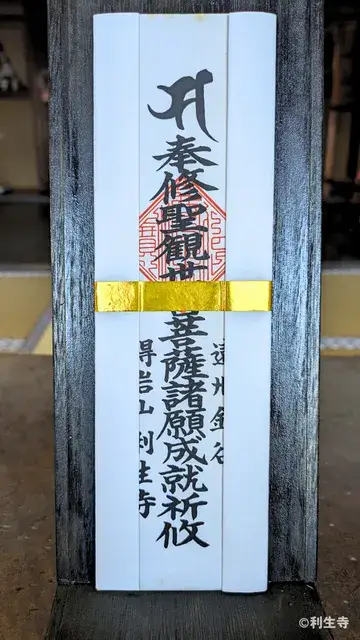 奉修聖観世菩薩諸願成就祈攸
遠州金谷
得岩山利生寺
©利生寺